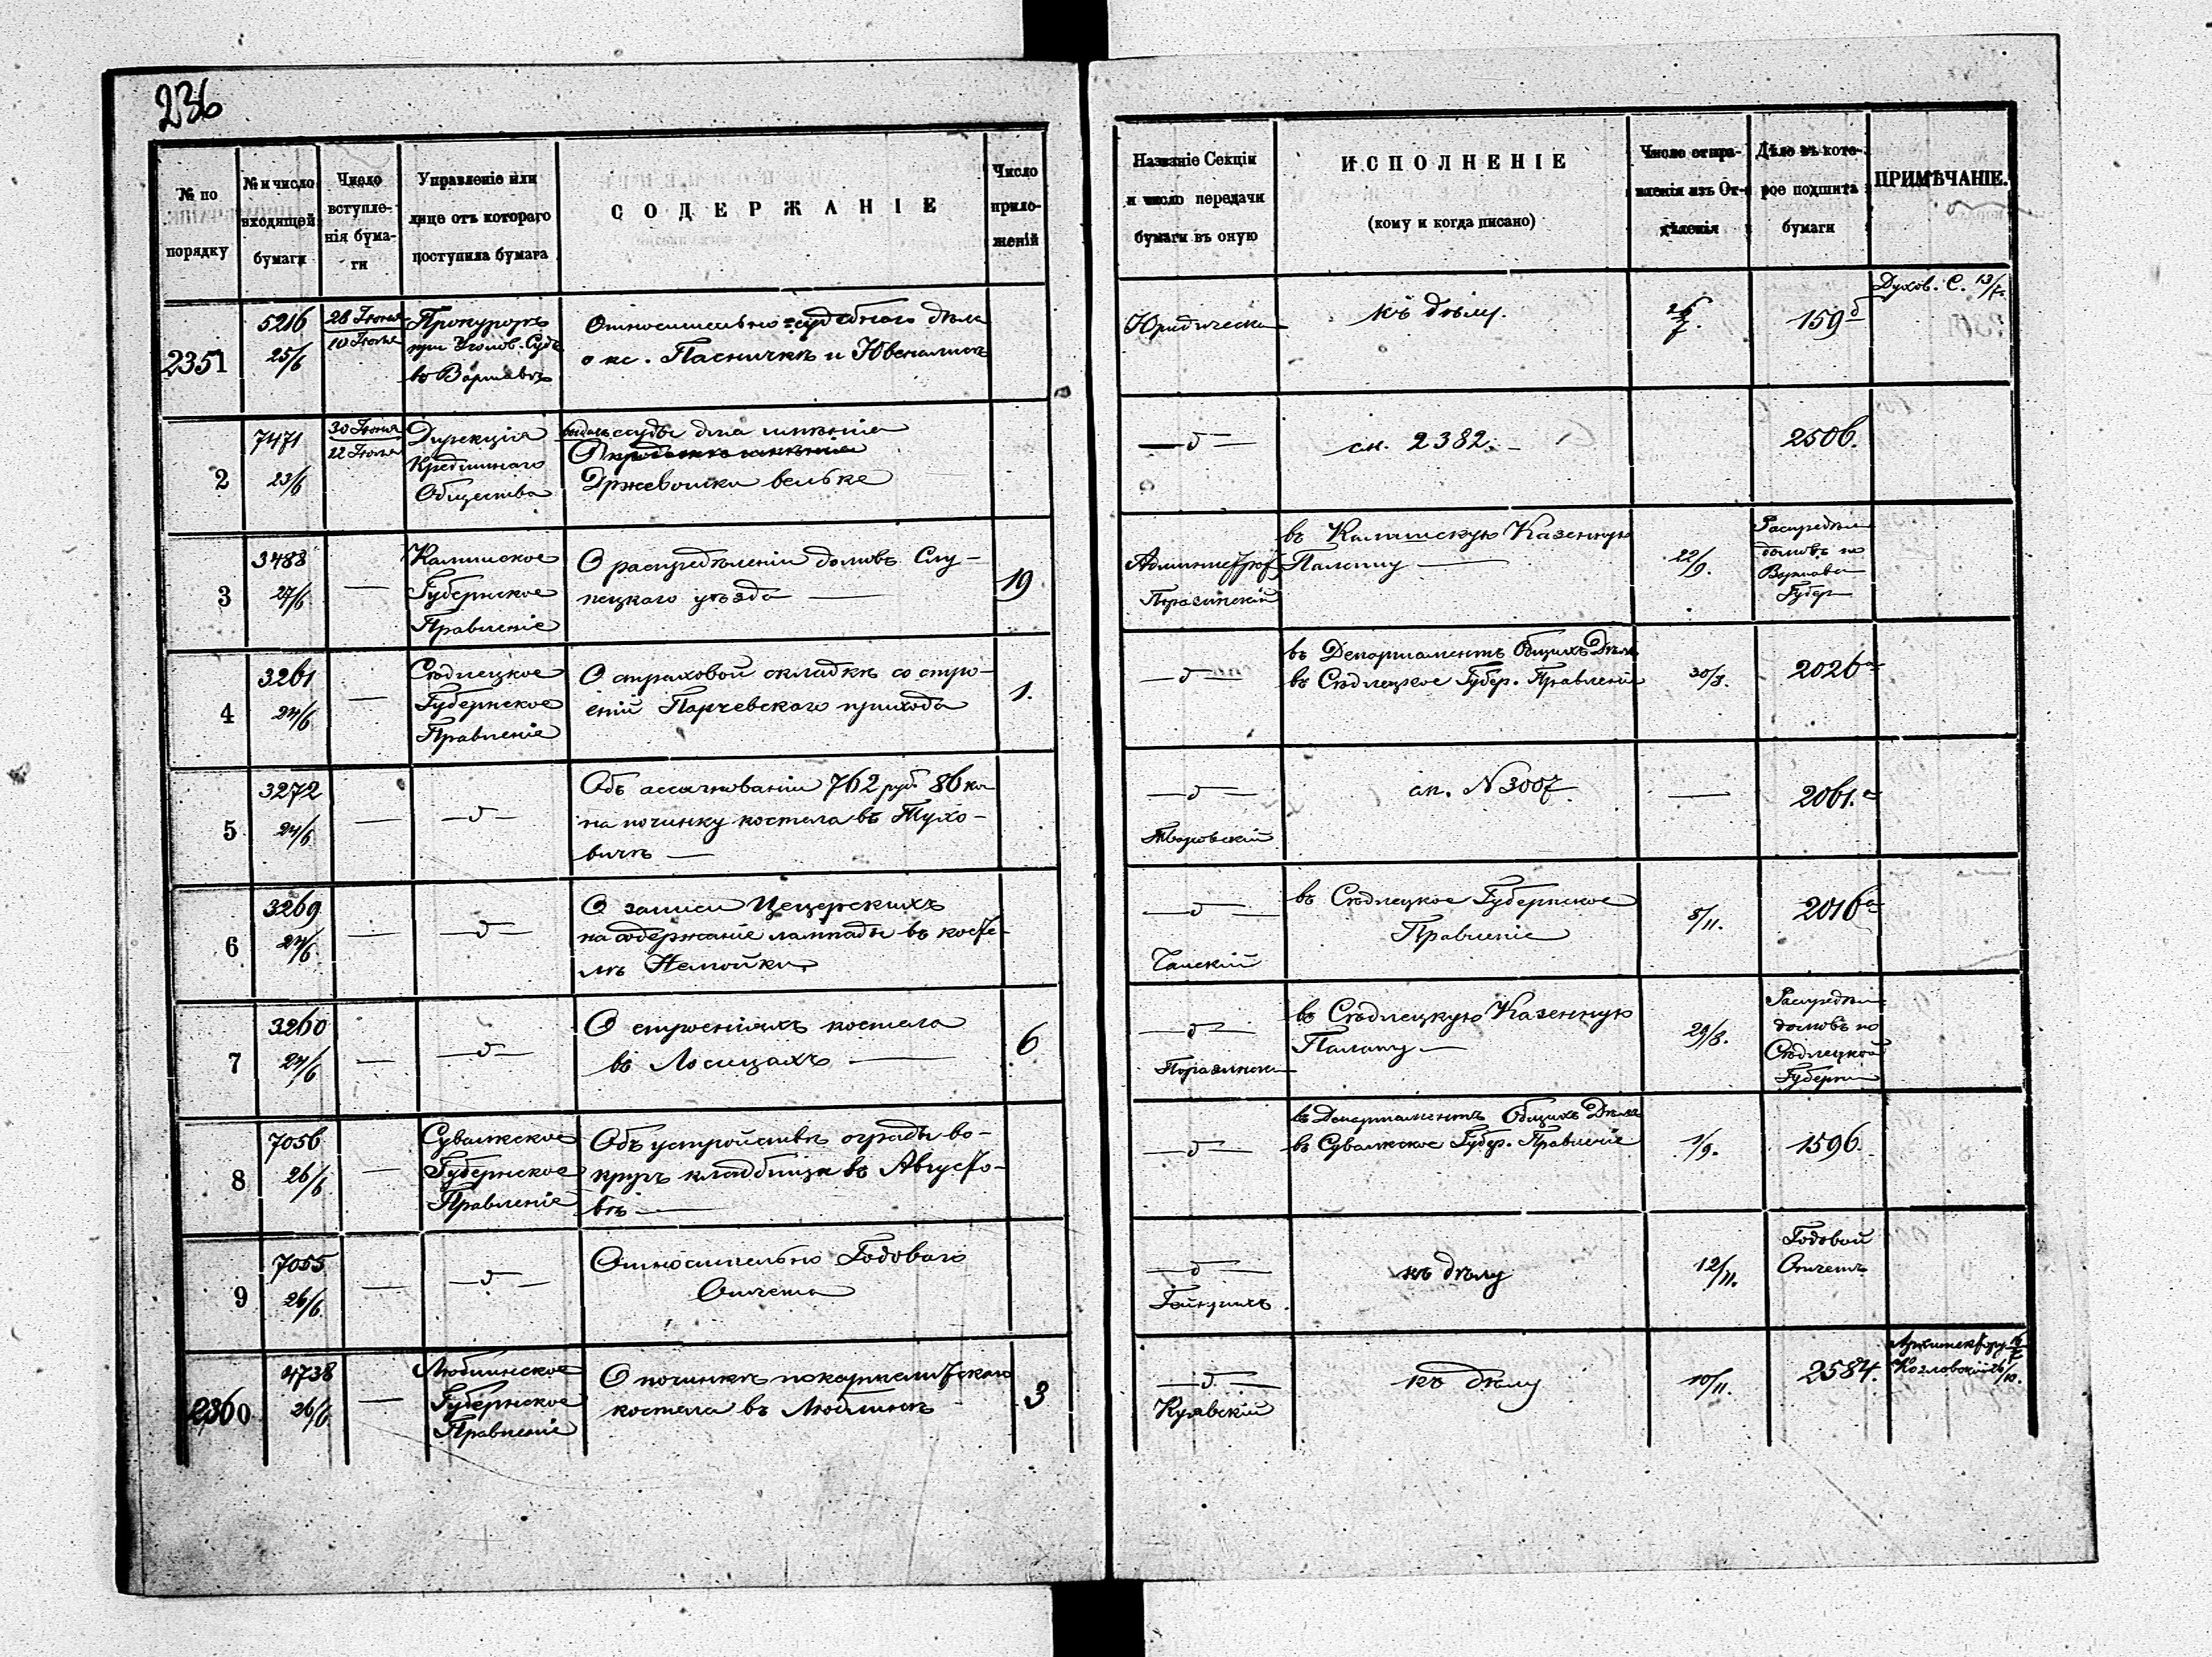 236
№ по порядку
№ и число входящей бумаги
Число вступле- нія бума- ги
Управленіе или лице отъ котораго поступила бумага
СОДЕРЖАНІЕ
Число прило- женій
Названіе Секціи и число передачи бумаги въ оную
ИСПОЛНЕНІЕ
(кому и когда писано)
Число отпра- вленія изъ От- дѣленія
Дѣло въ кото- рое подшита бумаги
ПРИМѢЧАНІЕ.
2351
5216
25/6
28 Іюня
10 Іюля
Прокуроръ
при Уголов. Судѣ
въ Варшавѣ
Относительно судебнаго дѣла
о кс. Пасничкѣ и Ювеналисѣ
Юридическа
къ дѣлу.
159б
Духов. С.
2
7471
23/6
30 Іюня
12 Іюля
Дирекція
Кредитнаго
Общества
ссуды для имѣнія
Држевошки вельке
— д —
сл. 2382. —
2506.
3
3488
27/6
—
Калишское
Губернское
Правленіе
О распредѣленіи домовъ Слу-
пецкаго уѣзда —
19
Поразинскій
въ Калишскую Казенную
Палату —
22/9.
Распредѣл
домовъ по
Варшавск
Губер
4
3261
24/6
—
Сѣдлецкое
Губернское
Правленіе
О страховой складкѣ со стро-
еній Парчевскаго прихода
1.
— д —
въ Департаментъ Общихъ Дѣлъ
въ Сѣдлецкое Губер. Правленіе
30/8.
2026а
5
3272
24/6
—
— д —
Объ ассигнованіи 762 руб 86 ко
на починку костела въ Тухо-
вичѣ —
— д —
сл. N 3007
—
2061.а
6
3269
24/6
—
— д —
О записи Цецерскихъ
на содержаніе лампады въ косте-
лѣ Немойки
— д —
въ Сѣдлецкое Губернское
Правленіе
5/11.
2016а
7
3260
24/6
—
— д —
О строеніяхъ костела
въ Лосицахъ —
6
— д —
Поразинск
въ Сѣдлецкую Казенную
Палату —
29/8.
Распредѣл
домовъ по
Сѣдлецкой
Губерн
8
7056
26/6
—
Сувалкское
Губернское
Правленіе
Объ устройствѣ ограды во-
кругъ кладбища въ Августо-
вѣ —
— д —
въ Департаментъ Общихъ Дѣлъ
въ Сувалкское Губер. Правленіе
1/9.
1596.
9
7055
26/6.
—
— д —
Относительно Годоваго
Отчета
— д —
къ дѣлу
12/11.
Годовой
Отчетъ
2360
4738
26/6
—
Люблинское
Губернское
Правленіе
О починкѣ покармелитскаго
костела въ Люблинѣ
3
— д —
Куявскій
къ дѣлу
10/11.
2584.
Архитектору
Козловскій